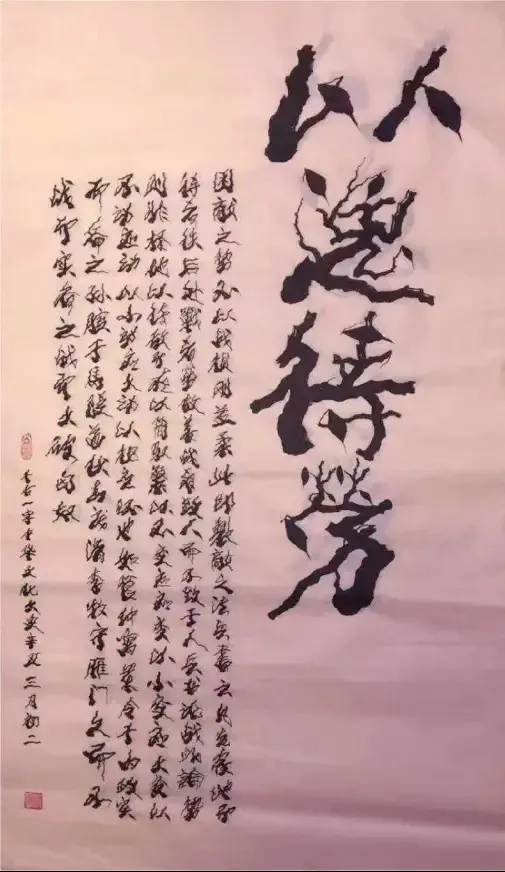 以逸待劳
困敵之势不以战损刚益柔此即製敵之法兵書云凡先處地而
待者佚后处戰者劳故善战者致人而不致于人兵书论战此論势
则非择地以待敌而在以简驭繁以不变应变以小变应大变以
不动应动以小动应大动以枢应环也如管仲寓军令于内政实
而备之孙膑于马陵道伏击庞涓李牧守雁门久而不
战而实备之战而大破匈奴
文化大 辛丑三月初二